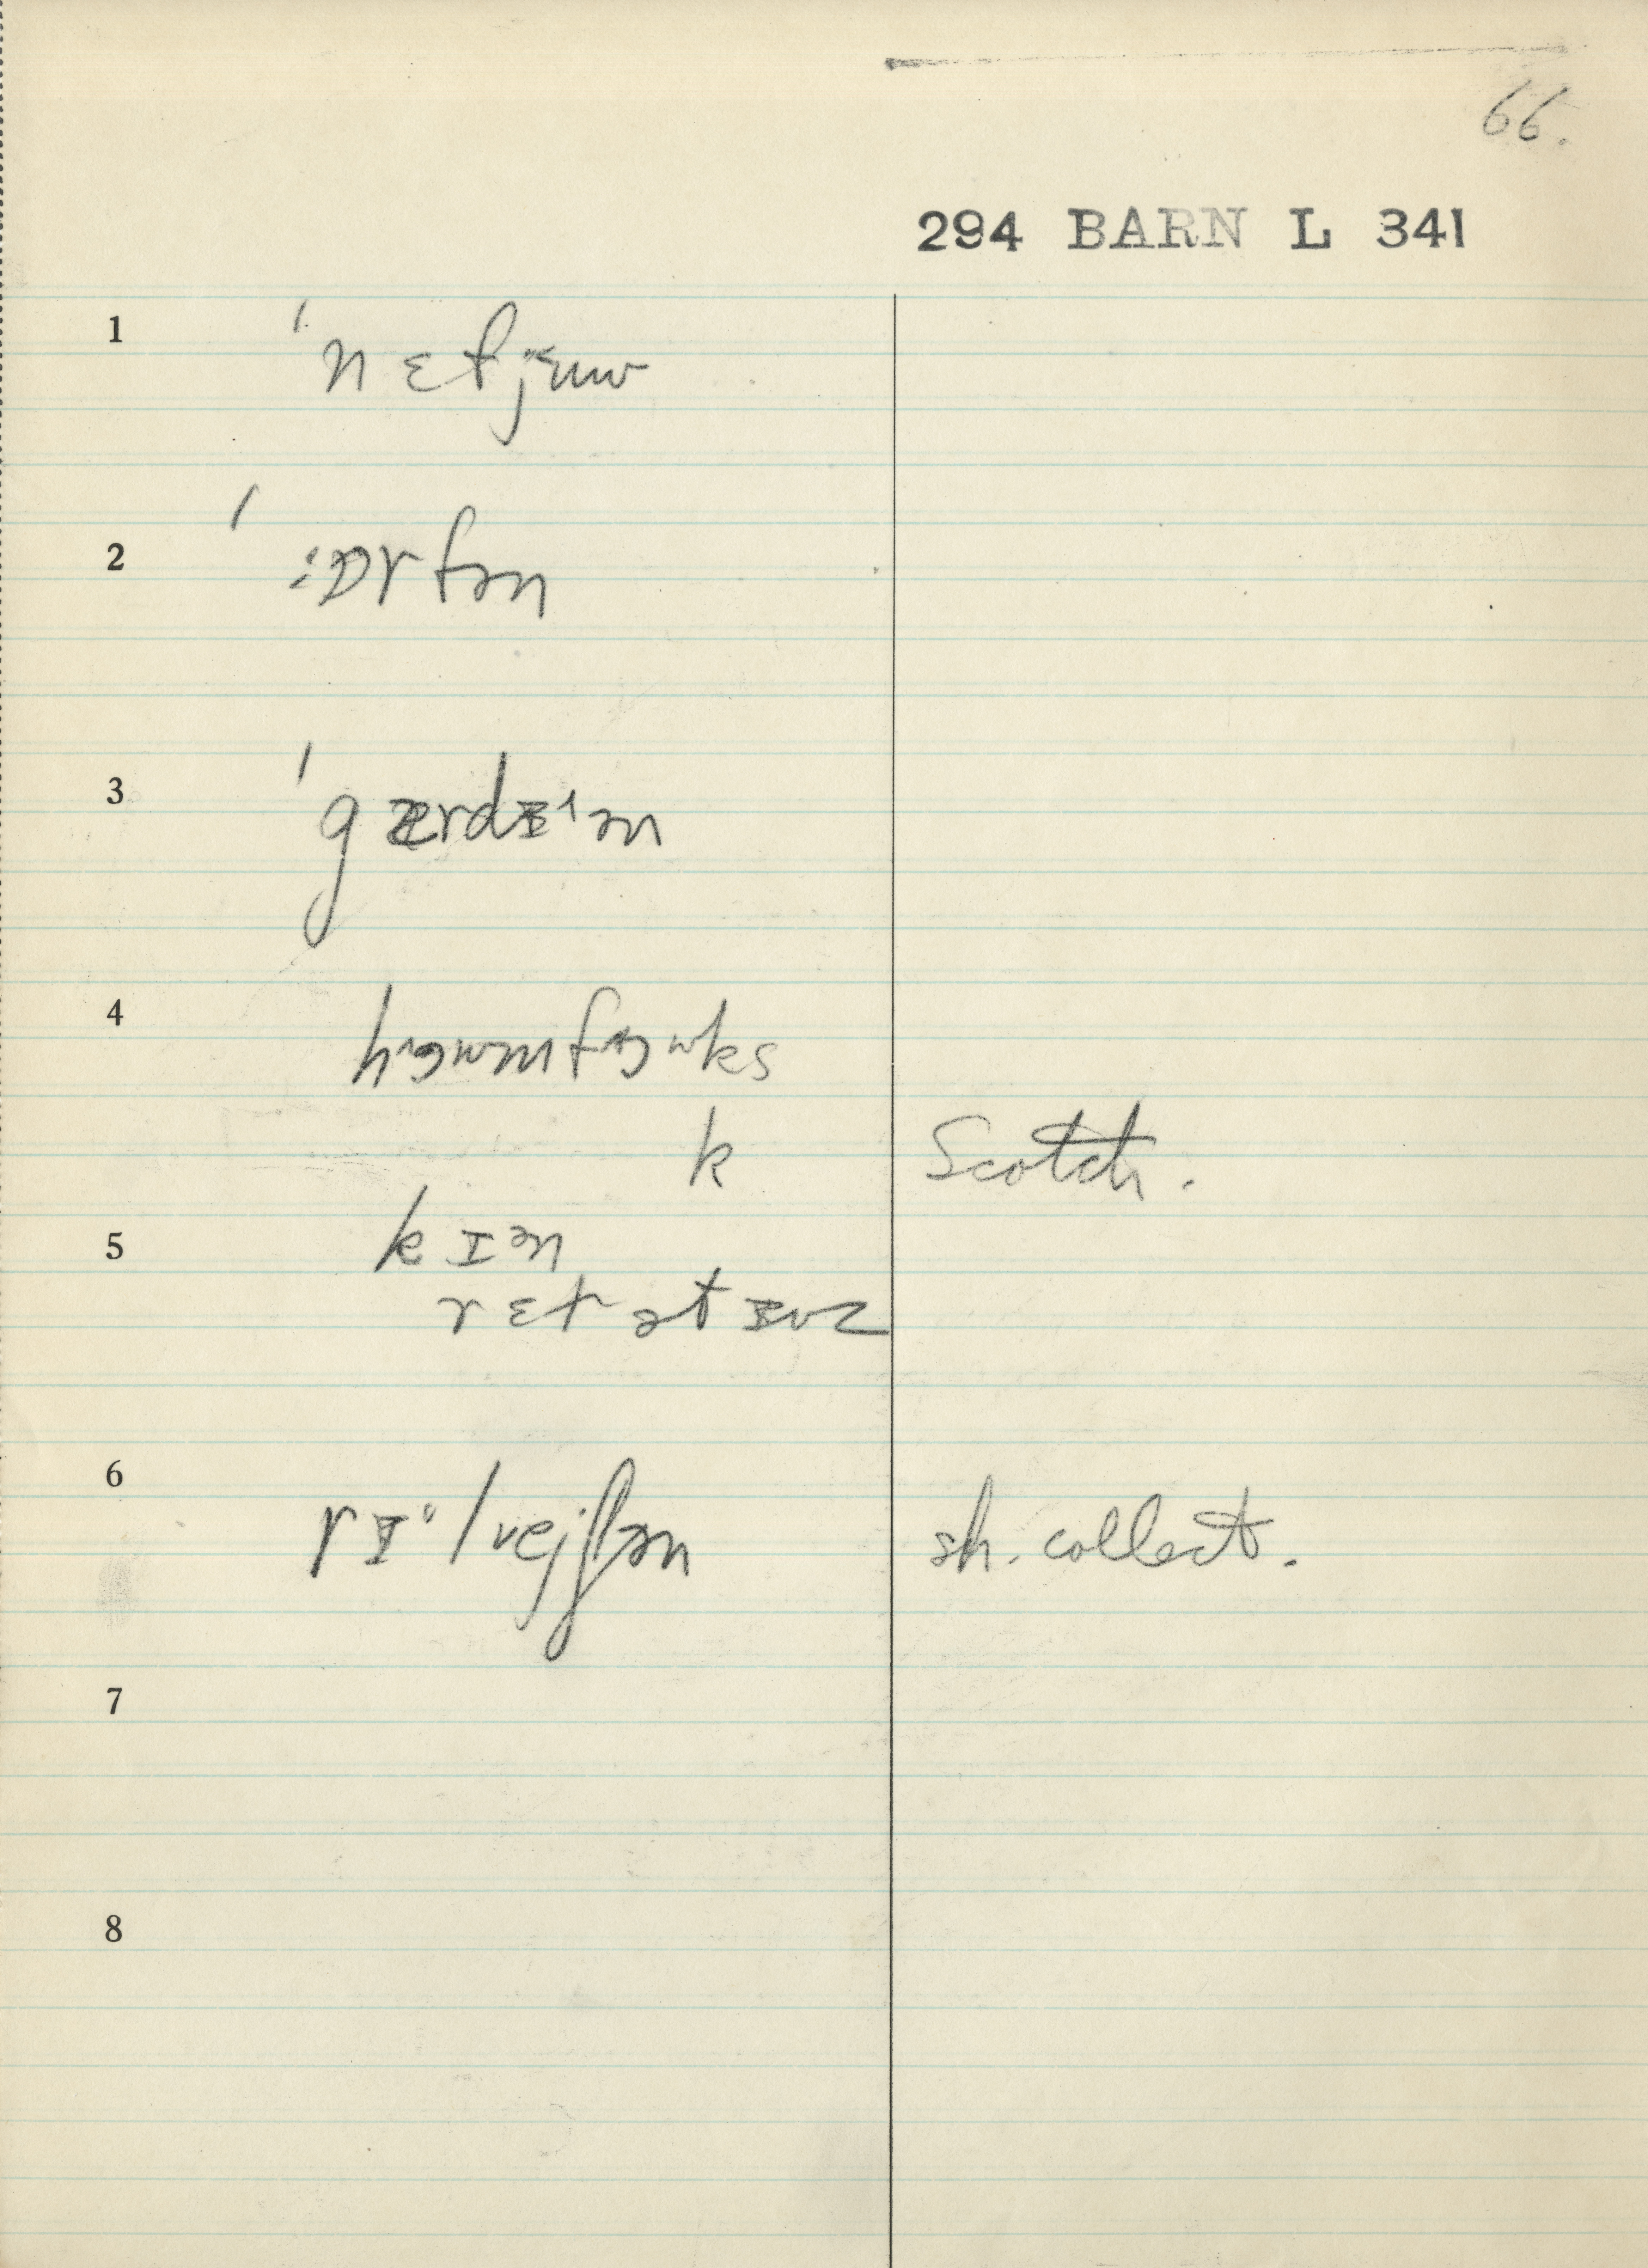 66.
294 BARN L 341
1 ˈnɛfjᵋuw
2 ˈ :ɒrfən
3 ˈgærdɪˈ^ən
4 hᵊɜwmfᵊɜwks
k Scotch.
5 kɪən
rɛtətɪvz
6 rɪˈlvejʃən sh. collect.
7
8